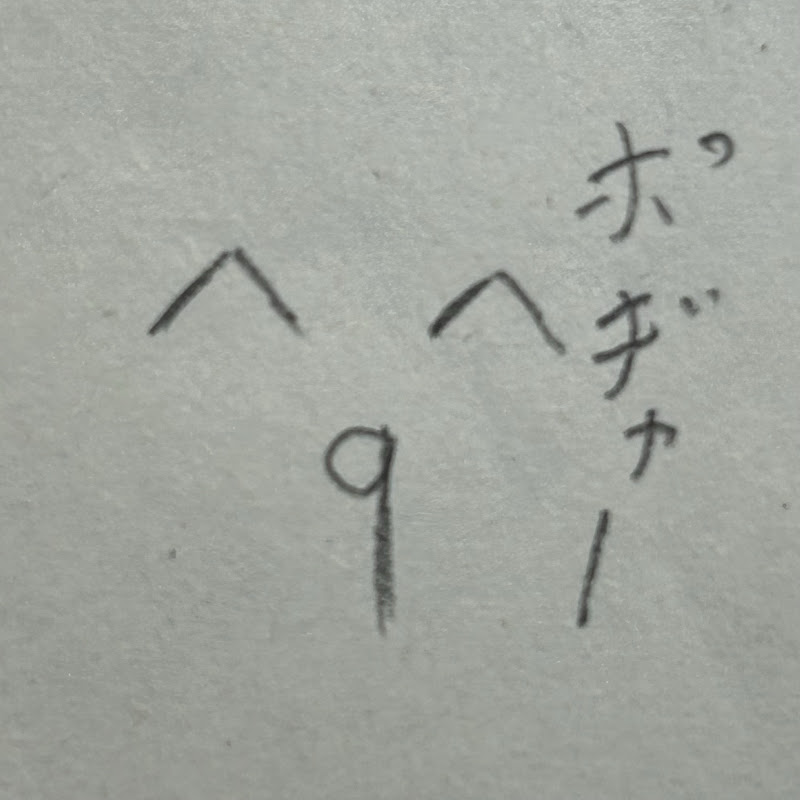 ポギャー
へ へ
9